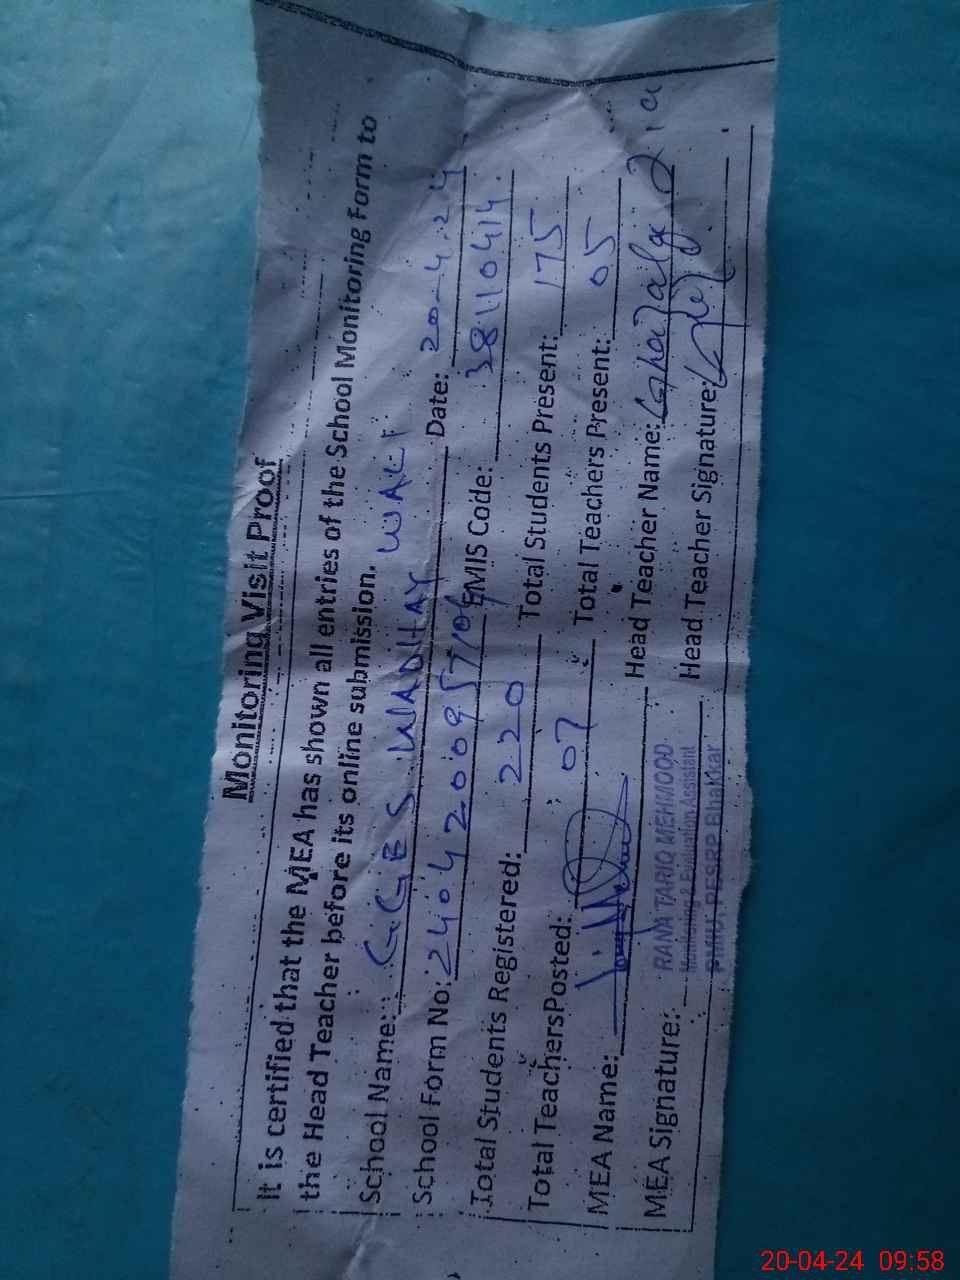 Monitoring Visit Proof
It is certified that the MEA has shown all entries of the School Monitoring Form to
the Head Teacher before its online submission.
School Name: GGES WADHAY WALI Date: 20-4-24
School Form No: 2404200957 EMIS Code: 38110414
Total Students Registered: 220 Total Students Present: 175
Total Teachers Posted: 07 Total Teachers Present: 05
MEA Name: Head Teacher Name: Ghazala
MEA Signature: RANA TARIQ MEHMOOD Head Teacher Signature:
Monitoring & Evaluation Assistant
PMIU, PESRP Bhakkar
20-04-24 09:58